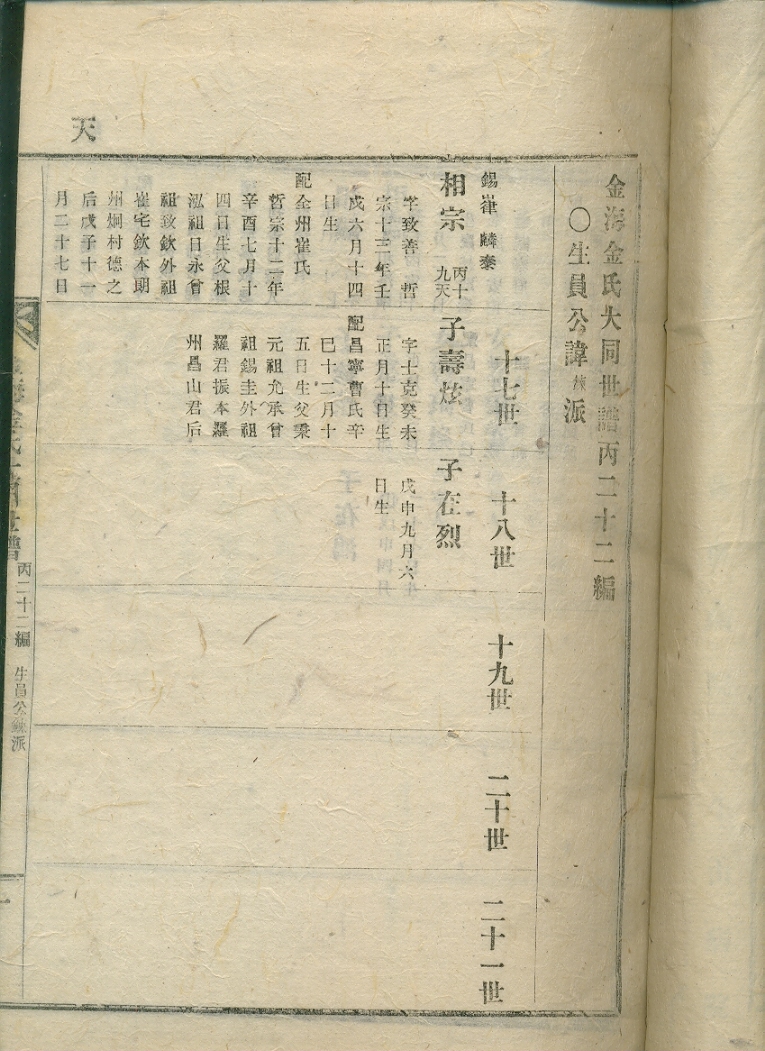 金海金氏大同世譜丙二十二編
○生員公諱 派
十七世
十八世
十九世
二十世
二十一世
錫嵂 麟泰
相宗 丙十九天
字致善 哲
宗十三年壬
戌六月十四
日生
配全州崔氏
哲宗十二年
辛酉七月十
四日生父根
泓祖日永曾
祖致欽外祖
崔宅欽本朗
州炯村德之
后戊子十一
月二十七日
子壽炫
字士克癸未
正月十日生
配昌寧曹氏辛
巳十二月十
五日生父秉
元祖允承曾
祖錫圭外祖
羅君振本羅
州昌山君后
子在烈
戊申九月六
日生
天
丙二十二編 生員公 派